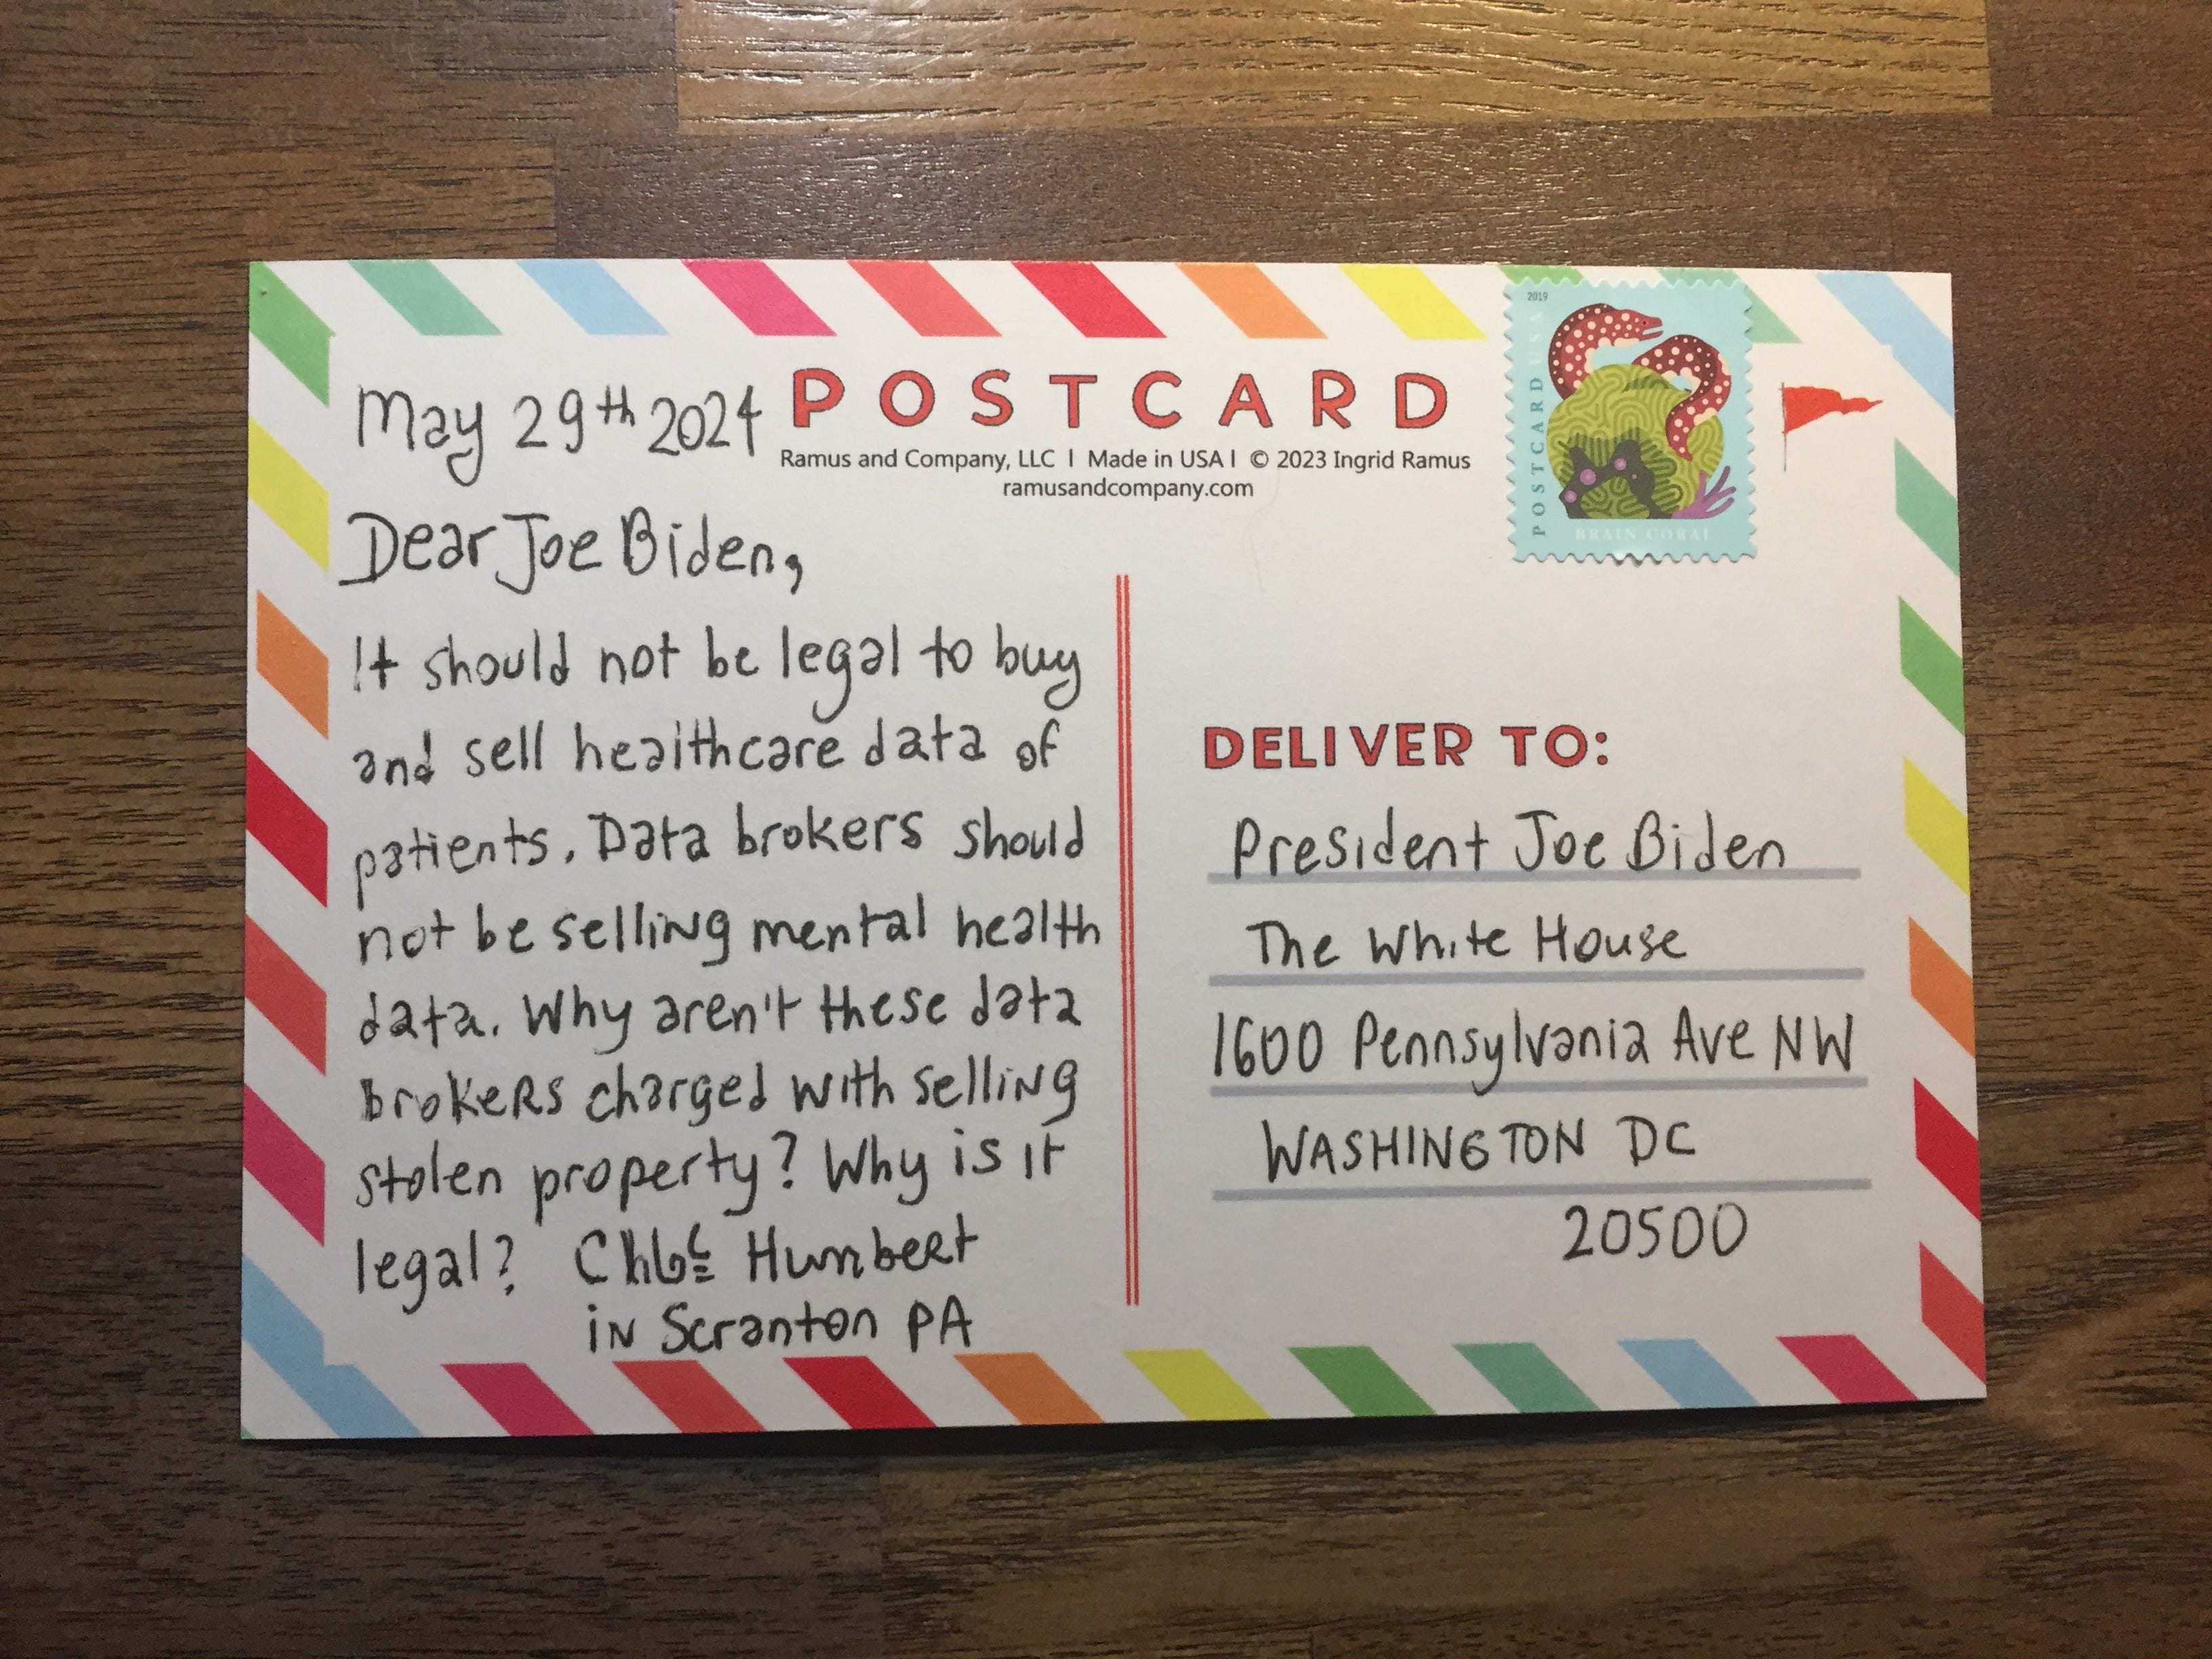 May 29th 2024
POSTCARD
Ramus and Company, LLC | Made in USA | © 2023 Ingrid Ramus
ramusandcompany.com
2019
POSTCARD USA
BRAIN CORAL
Dear Joe Biden,
It should not be legal to buy
and sell healthcare data of
patients. Data brokers should
not be selling mental health
data. Why aren't these data
brokers charged with selling
stolen property? Why is it
legal? Chloe Humbert
in Scranton PA
DELIVER TO:
President Joe Biden
The White House
1600 Pennsylvania Ave NW
WASHINGTON DC
20500